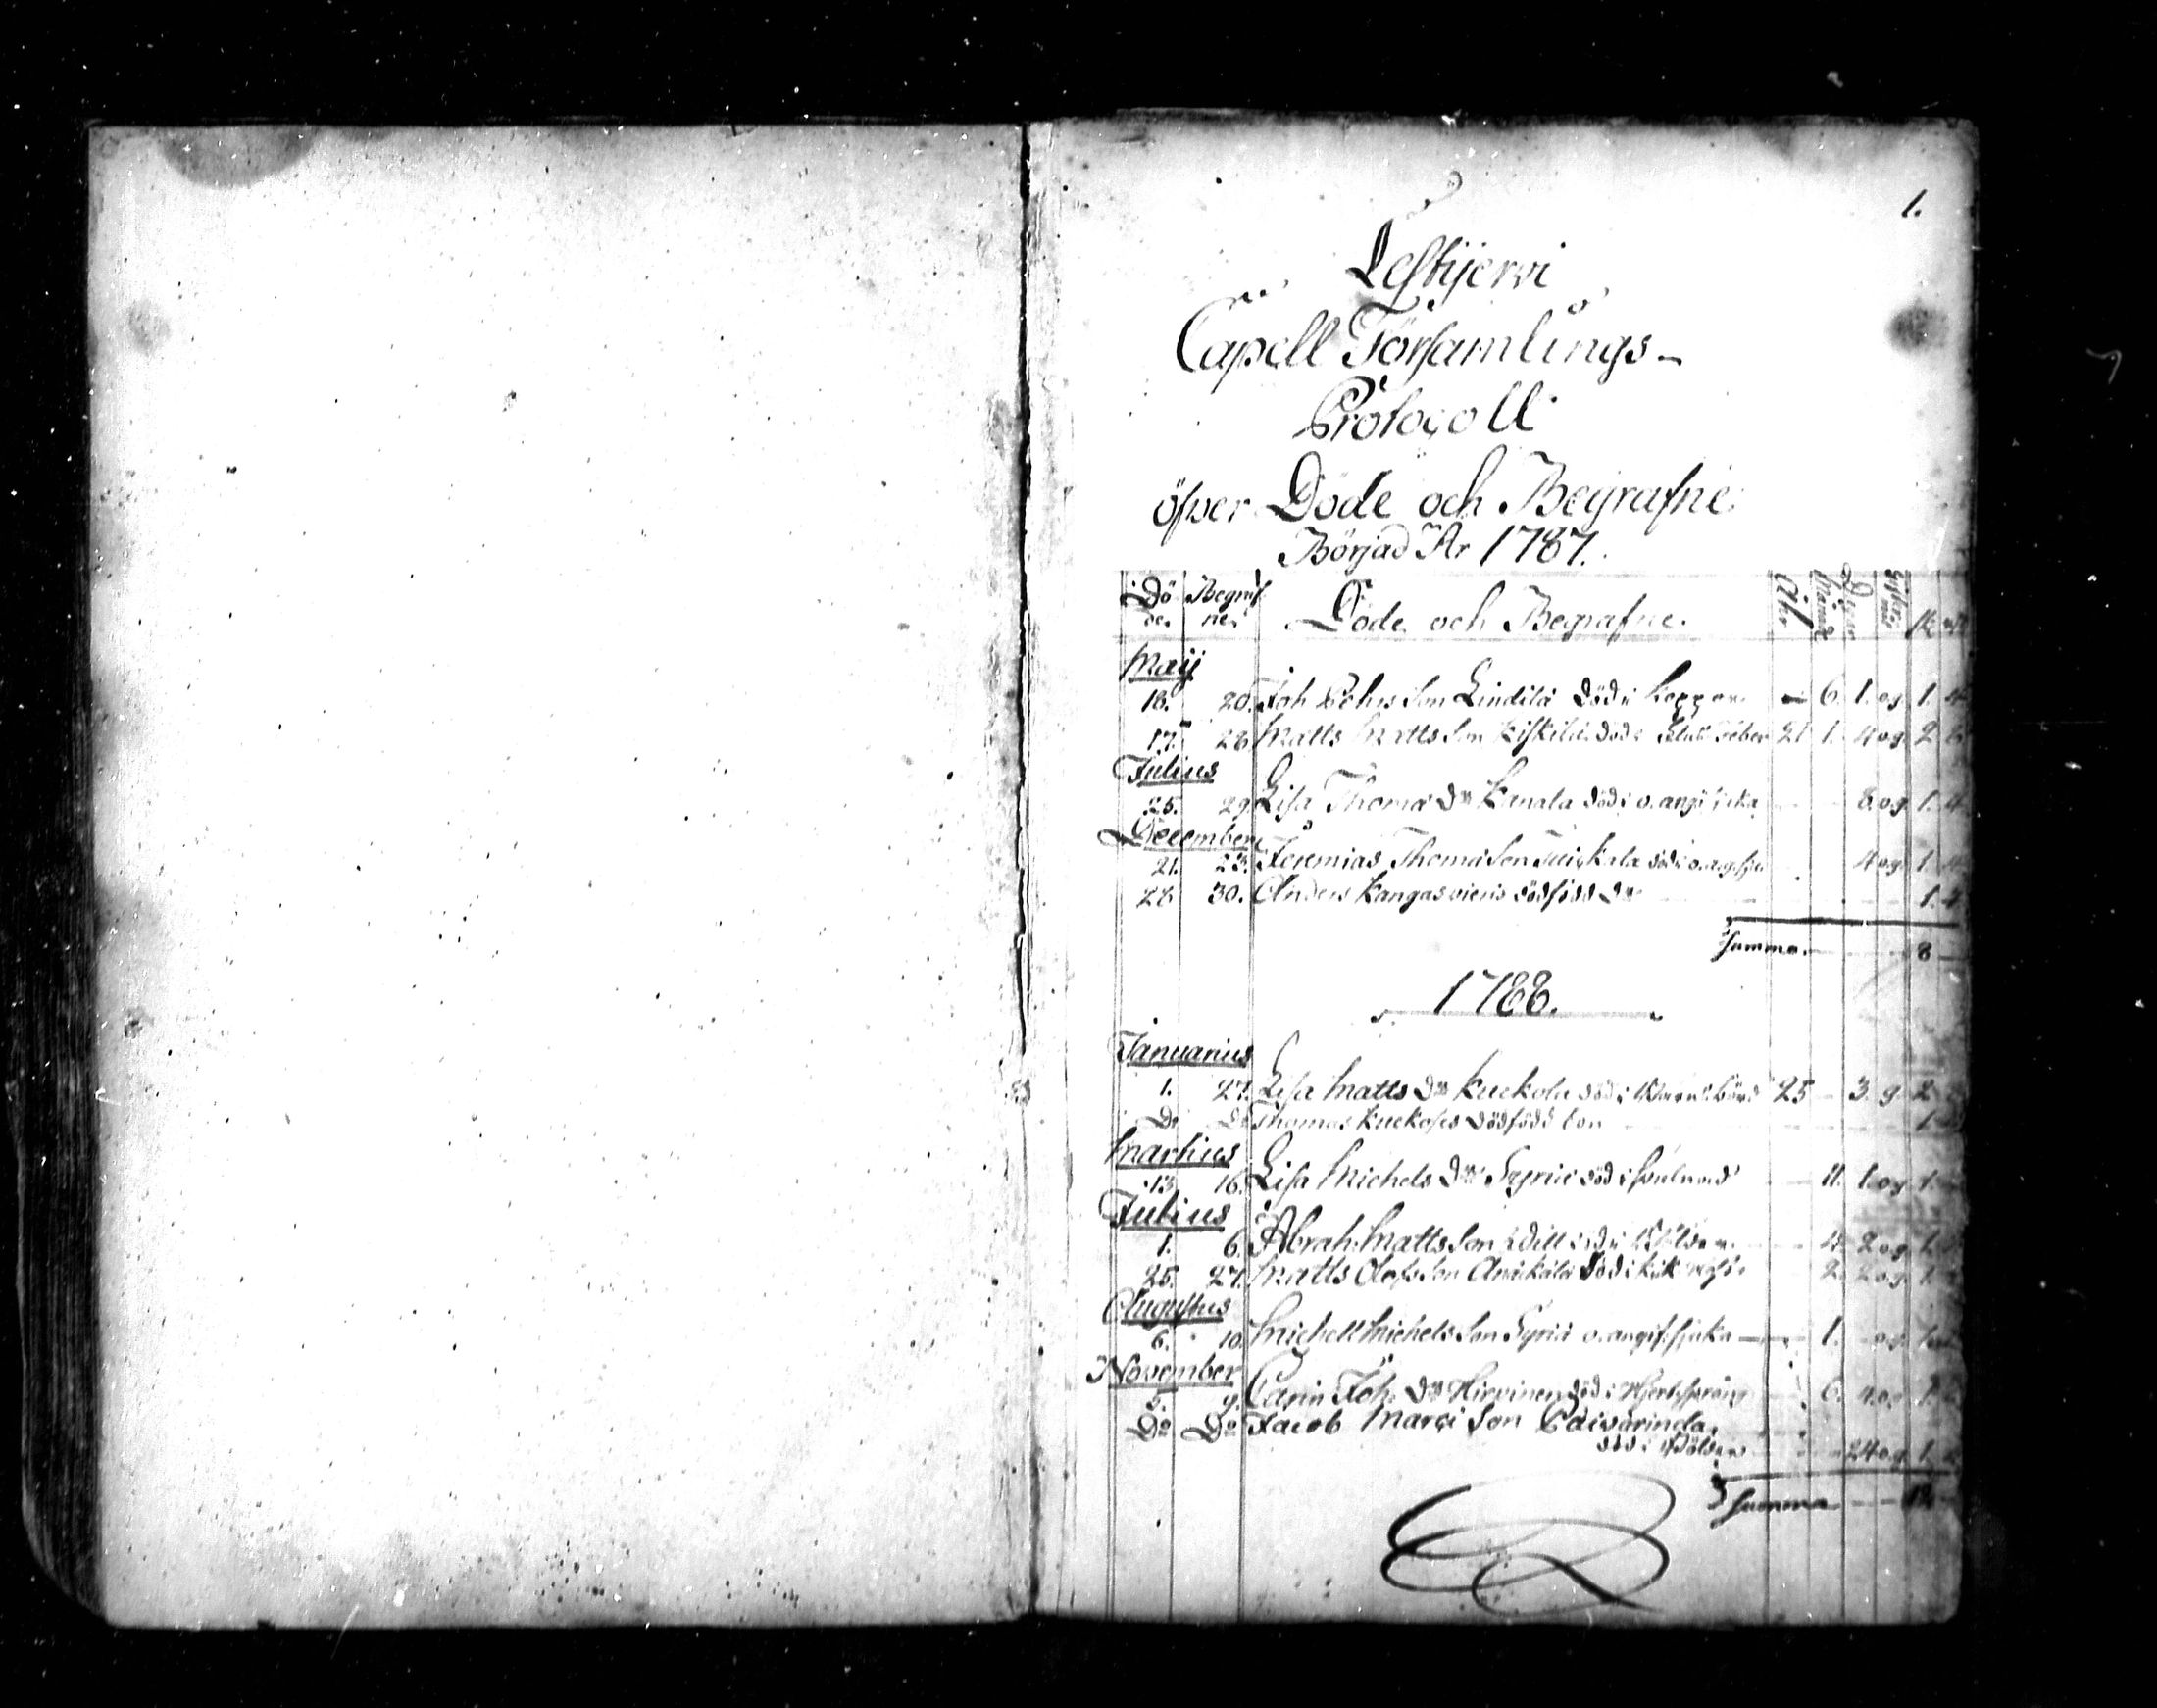 1.
Lestijervi
Capell Församlings-
Protocoll
öfwer Döde och Begrafne
Börjad År 1787.
Dö Begraf
de. ne. Döde och Begrafne. Åhr
Maij
18. 20. Joh Pehrs Son Lindilä död i koppor 6. 1. og. 1. 4
17. 28. Matts Matts Son död i feber 21 1. 4 og. 2
Julius
25. 29 Lisa Thomæ dr Kanala död i o. angif siuka 8. og. 1. 4
December
21. 23. Jeremias Thomæ Son död i 4 og. 1 4
28 30. Anders Kangasniemis dödfödd dr 1. 4
Summa. 8
1788.
Januarius
1. 27. Lisa Matts dr Kuckola död i Barns börd 25 3. g. 2
Do Do Thomas Kuckolas dödfödd Son 1.
Martius
13 16. Lisa Michels dr Syriä död i 11. 1. og. 1.
Julius
1. 6. Abrah. Matts Son död i 4 2 og. 1.
25. 27. Matts Olofs Son död i kik 2. 2 og. 1.
Augustus
6. 10. Michell Michels Son Syriä o. angif. sjuka 1. og. 1
November
5. 9. Carin Joh. dr Hirvinen död i 6. 4. og. 1.
Do Do Jacob Marci Son Päivärinda
död i 24 og. 1.
Summa 12